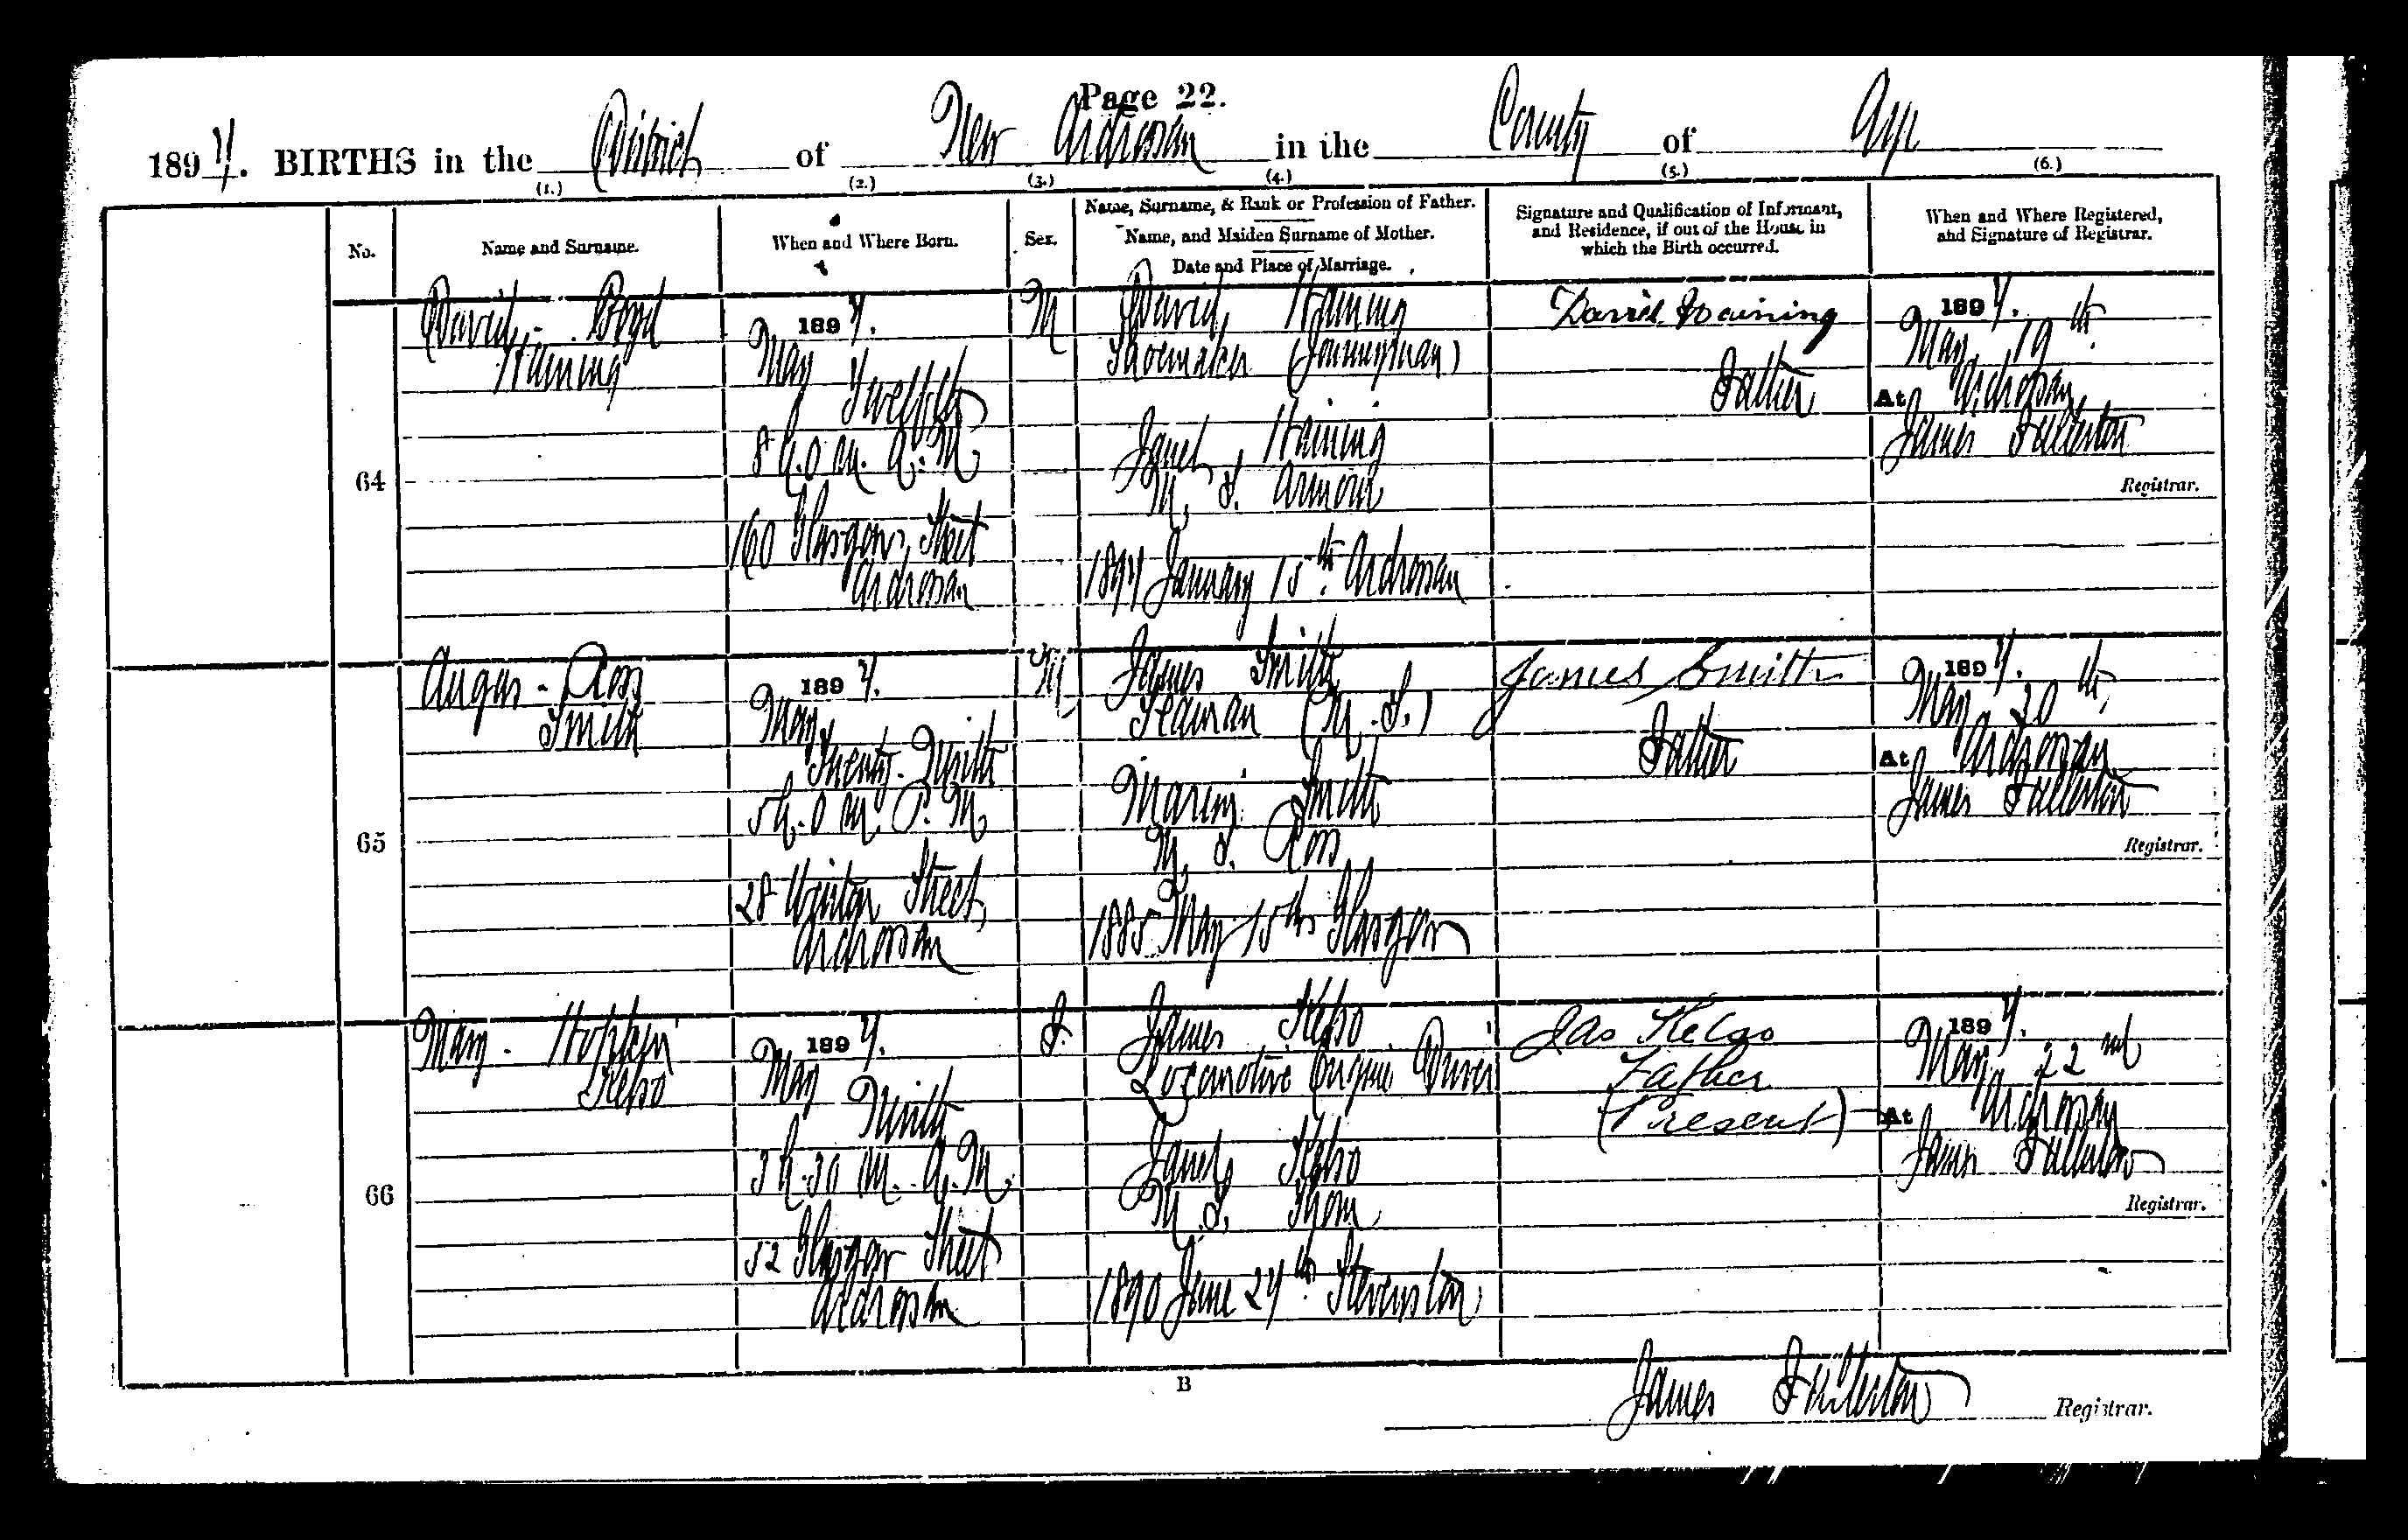 Page 22.
1894. BIRTHS in the District of New Ardrossan in the County of Ayr
(1.) (2.) (3.) (4.) (5.) (6.)
No.
Name and Surname.
When and Where Born.
Sex.
Name, Surname, & Rank or Profession of Father.
Name, and Maiden Surname of Mother.
Date and Place of Marriage.
Signature and Qualification of Informant,
and Residence, if out of the House in
which the Birth occurred.
When and Where Registered,
and Signature of Registrar.
64
David Boyd
Haining
1894.
May
Twelfth
8 h. 0 m. A. M.
160 Glasgow Street
Ardrossan
M
David Haining
Shoemaker (Journeyman)
Janet Haining
M. S. Armour
1894 January 15th Ardrossan
David Haining
Father
1894.
May 19th
At Ardrossan
James Fullerton
Registrar.
65
Angus Ross
Smith
1894.
May
5 h. 0 m. P. M.
28 Winton Street
Ardrossan
M
James Smith
Seaman (M. S.)
Smith
M. S. Ross
1885 May 15th Glasgow
James Smith
Father
1894.
May
At Ardrossan
James Fullerton
Registrar.
66
Mary Hopkin
Kelso
1894.
May Ninth
3 h. 30 m. A. M.
52 Glasgow Street
Ardrossan
F.
James Kelso
Locomotive Engine Driver
Janet Kelso
M. S. Thom
1890 June 27th Stevenston
Jas Kelso
Father
(Present)
1894.
May 22nd
At Ardrossan
James Fullerton
Registrar.
B
James Fullerton Registrar.